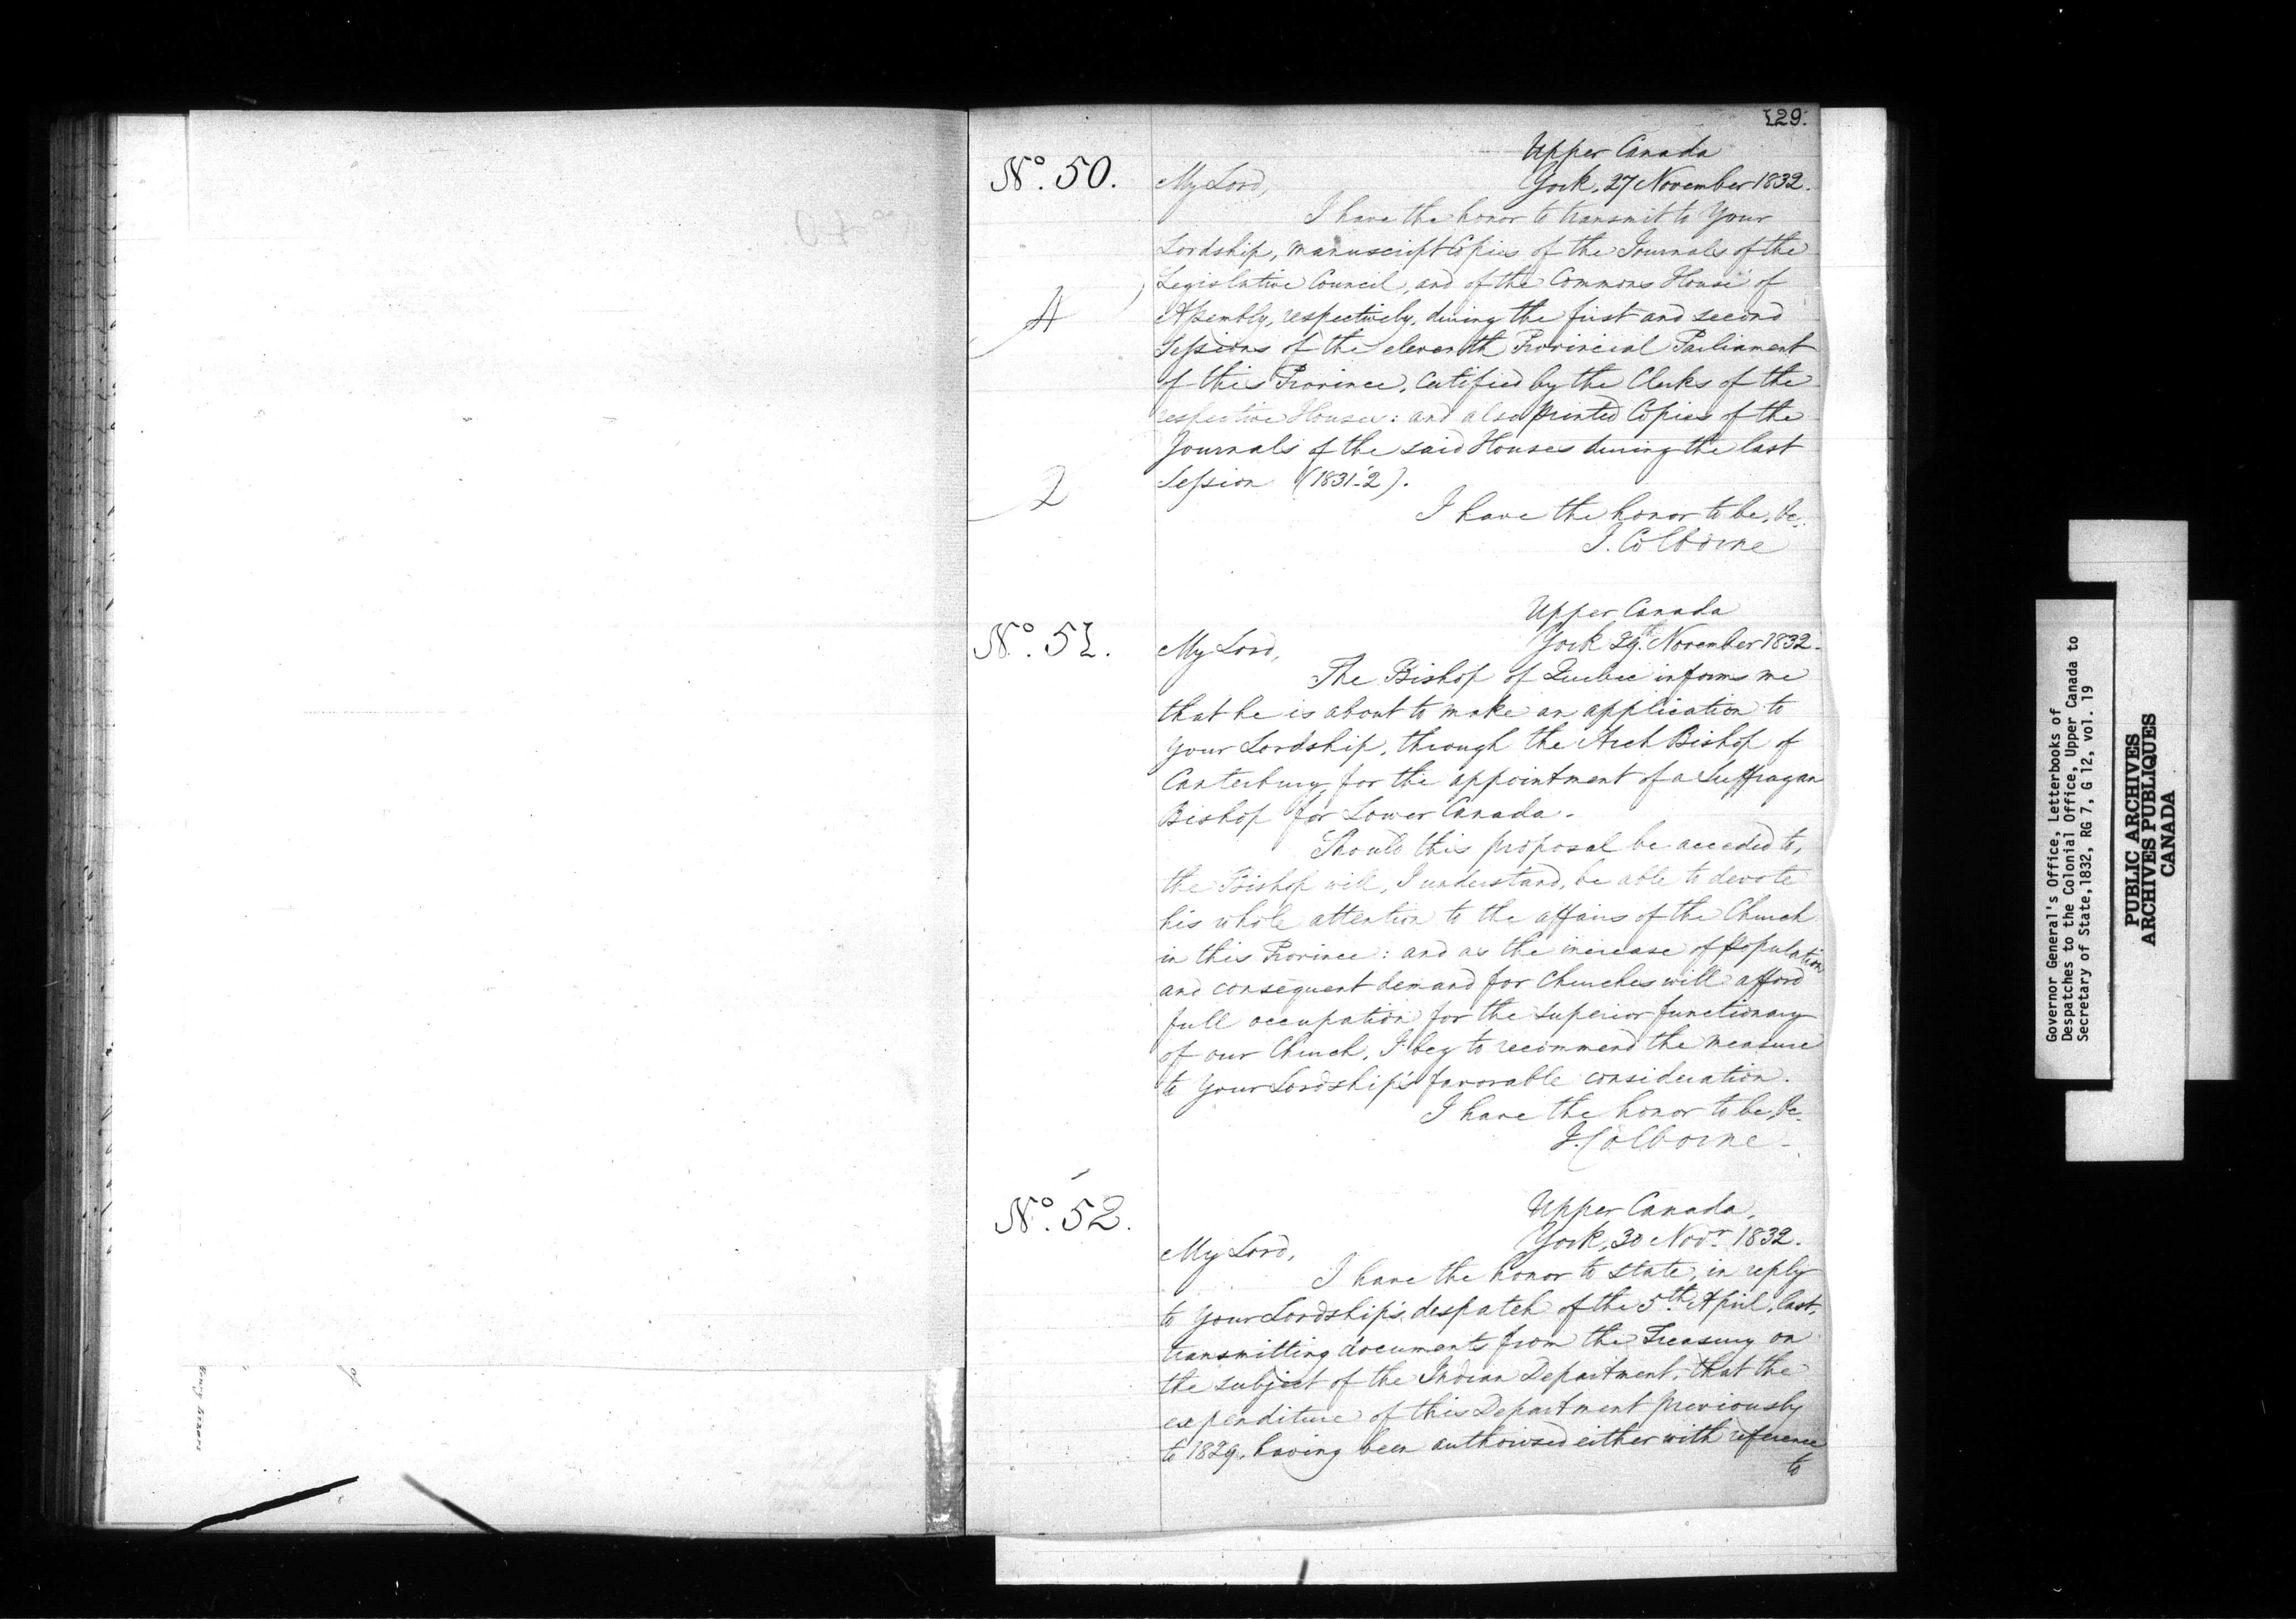 129.
Upper Canada
No. 50.
My Lord,
York, 27 November 1832.
I have the honor to transmit to Your
Lordship, manuscript Copies of the Journals of the
Legislative Council, and of the Commons House of
4
Assembly, respectively, during the first and second
Sessions of the eleventh Provincial Parliament
of this Province, certified by the Clerks of the
respective Houses: and also printed Copies of the
Journals of the said Houses during the last
2
Session (1831-2).
I have the honor to be, &c.
J. Colborne
Upper Canada
No. 51.
My Lord,
York 29th November 1832.
The Bishop of Quebec informs me
that he is about to make an application to
your Lordship, through the Arch Bishop of
Canterbury, for the appointment of a Suffragan
Bishop for Lower Canada.
Should this proposal be acceded to,
the Bishop will, I understand, be able to devote
his whole attention to the affairs of the Church
in this Province: and as the increase of population
and consequent demand for Churches will afford
full occupation for the superior functionary
of our Church, I beg to recommend the measure
to Your Lordship's favorable consideration.
I have the honor to be, &c.
J. Colborne.
Upper Canada,
No. 52.
York, 30 Novr. 1832.
My Lord,
I have the honor to state, in reply
to Your Lordship's despatch of the 5th April, last,
transmitting documents from the Treasury on
the subject of the Indian Department, that the
expenditure of this Department previously
to 1829, having been authorised either with reference
to
Governor General's Office, Letterbooks of
Despatches to the Colonial Office, Upper Canada to
Secretary of State, 1832, RG 7, G 12, vol. 19
PUBLIC ARCHIVES
ARCHIVES PUBLIQUES
CANADA